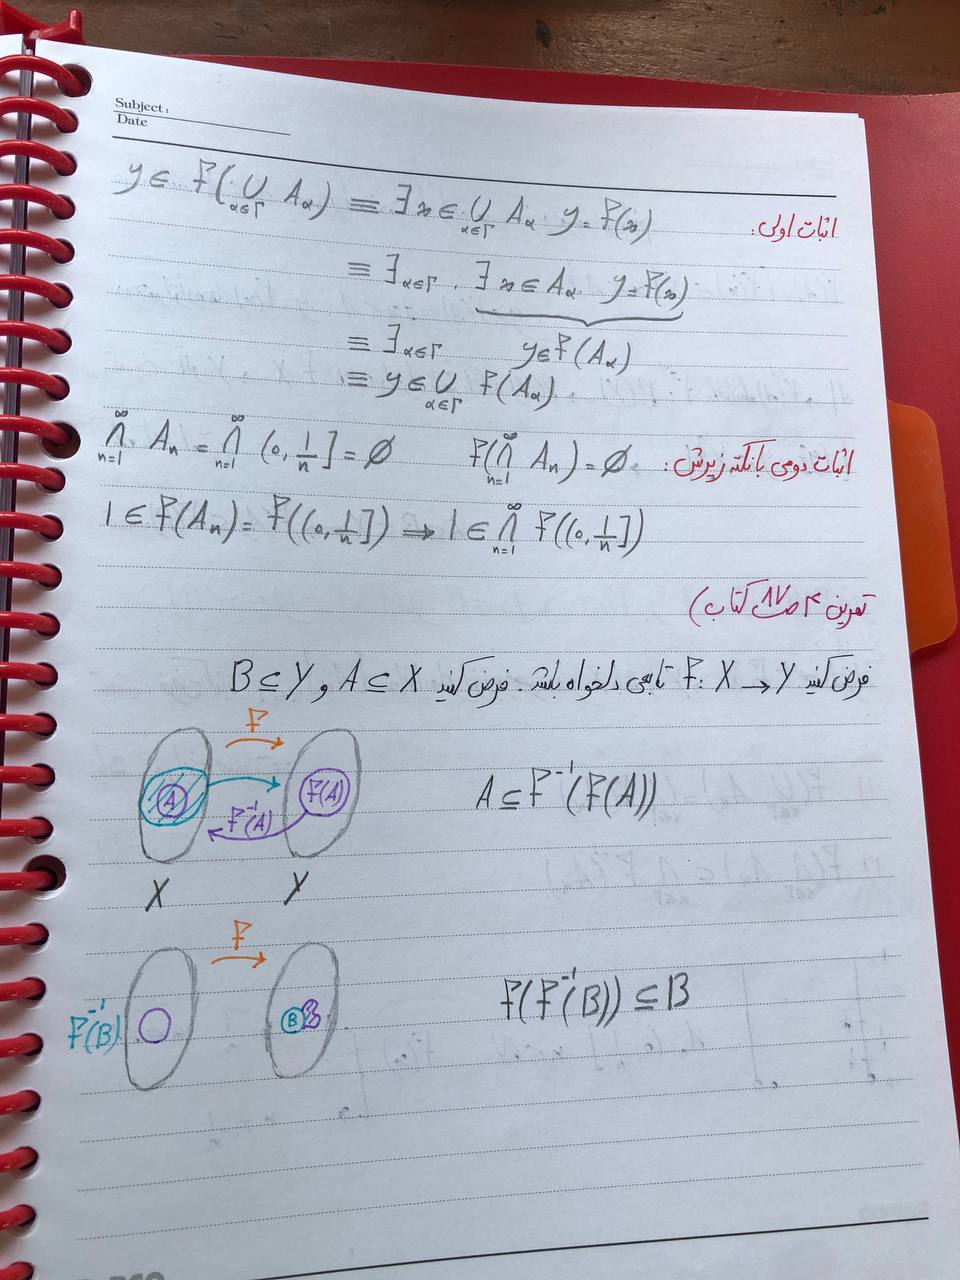 Subject:
Date
اثبات اولی:
y ∈ f(∪_{α∈Γ} A_α) ≡ ∃ x ∈ ∪_{α∈Γ} A_α . y = f(x)
≡ ∃_{α∈Γ} . ∃ x ∈ A_α y = f(x)
≡ ∃_{α∈Γ} y ∈ f(A_α)
≡ y ∈ ∪_{α∈Γ} f(A_α)
اثبات دومی با نکته زیرش:
∩_{n=1}^{∞} A_n = ∩_{n=1}^{∞} (0, 1/n] = ∅ f(∩_{n=1}^{∞} A_n) = ∅
1 ∈ f(A_n) = f((0, 1/n]) → 1 ∈ ∩_{n=1}^{∞} f((0, 1/n])
تمرین ۴ ص ۸۷ کتاب)
فرض کنید f: X → Y تابعی دلخواه باشد. فرض کنید A ⊆ X و B ⊆ Y
f
A f(A)
f⁻¹(A)
A ⊆ f⁻¹(f(A))
X Y
f
f⁻¹(B) B
f(f⁻¹(B)) ⊆ B